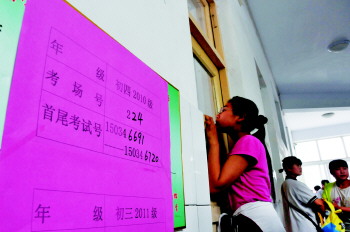 年 级 初四2010级
考 场 号 224
首尾考试号 150346691
—150346720
年 级 初三2011级